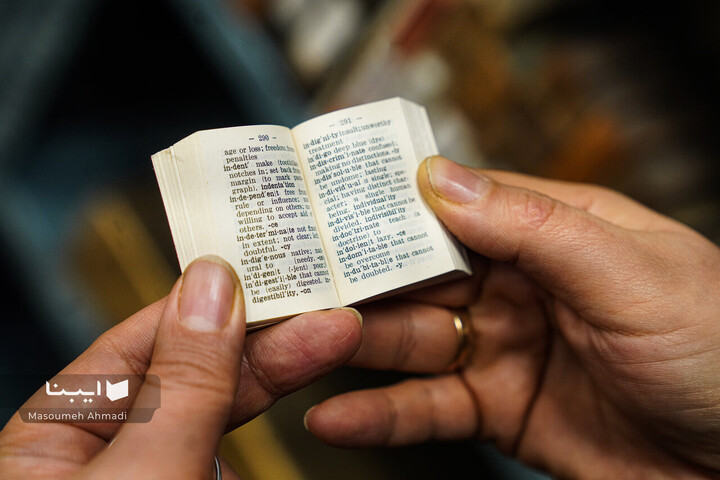 - 290 -
age or loss; freedom from
penalties
in-dent' make (tooth-)
notches in; set back from
margin (to mark para-
graph). indentation
in-de-pend'ent free from
rule or influence; not
depending on others; not
willing to accept aid of
others. -ce
in-de-ter'mi-nate not fixed
in extent; not clear;
doubtful. -cy
in-dig'e-nous native; nat-
ural to (needy. -n
in'di-gent (-jent) poor;
in'di-gest'i-ble that cannot
be (easily) digested.
digestibility, -on
- 291 -
in-dig'ni-ty insult; unworthy
treatment
in'di-go deep blue (dye)
in-dis-crim'i-nate confused;
making no distinctions. -ly
in-dis'sol-u-ble that cannot
be undone; lasting
in-di-vid'u-al a single; spe-
cial; having distinct char-
acter; a single human
being. individuality
in-di-vis'i-ble that cannot be
divided. indivisibility
in-doc'tri-nate teach (a
doctrine) to
in'do-lent lazy. -ce
in-dom'i-ta-ble that cannot
be overcome
in-du'bi-ta-ble that cannot
be doubted. -y
ایبنا
Masoumeh Ahmadi